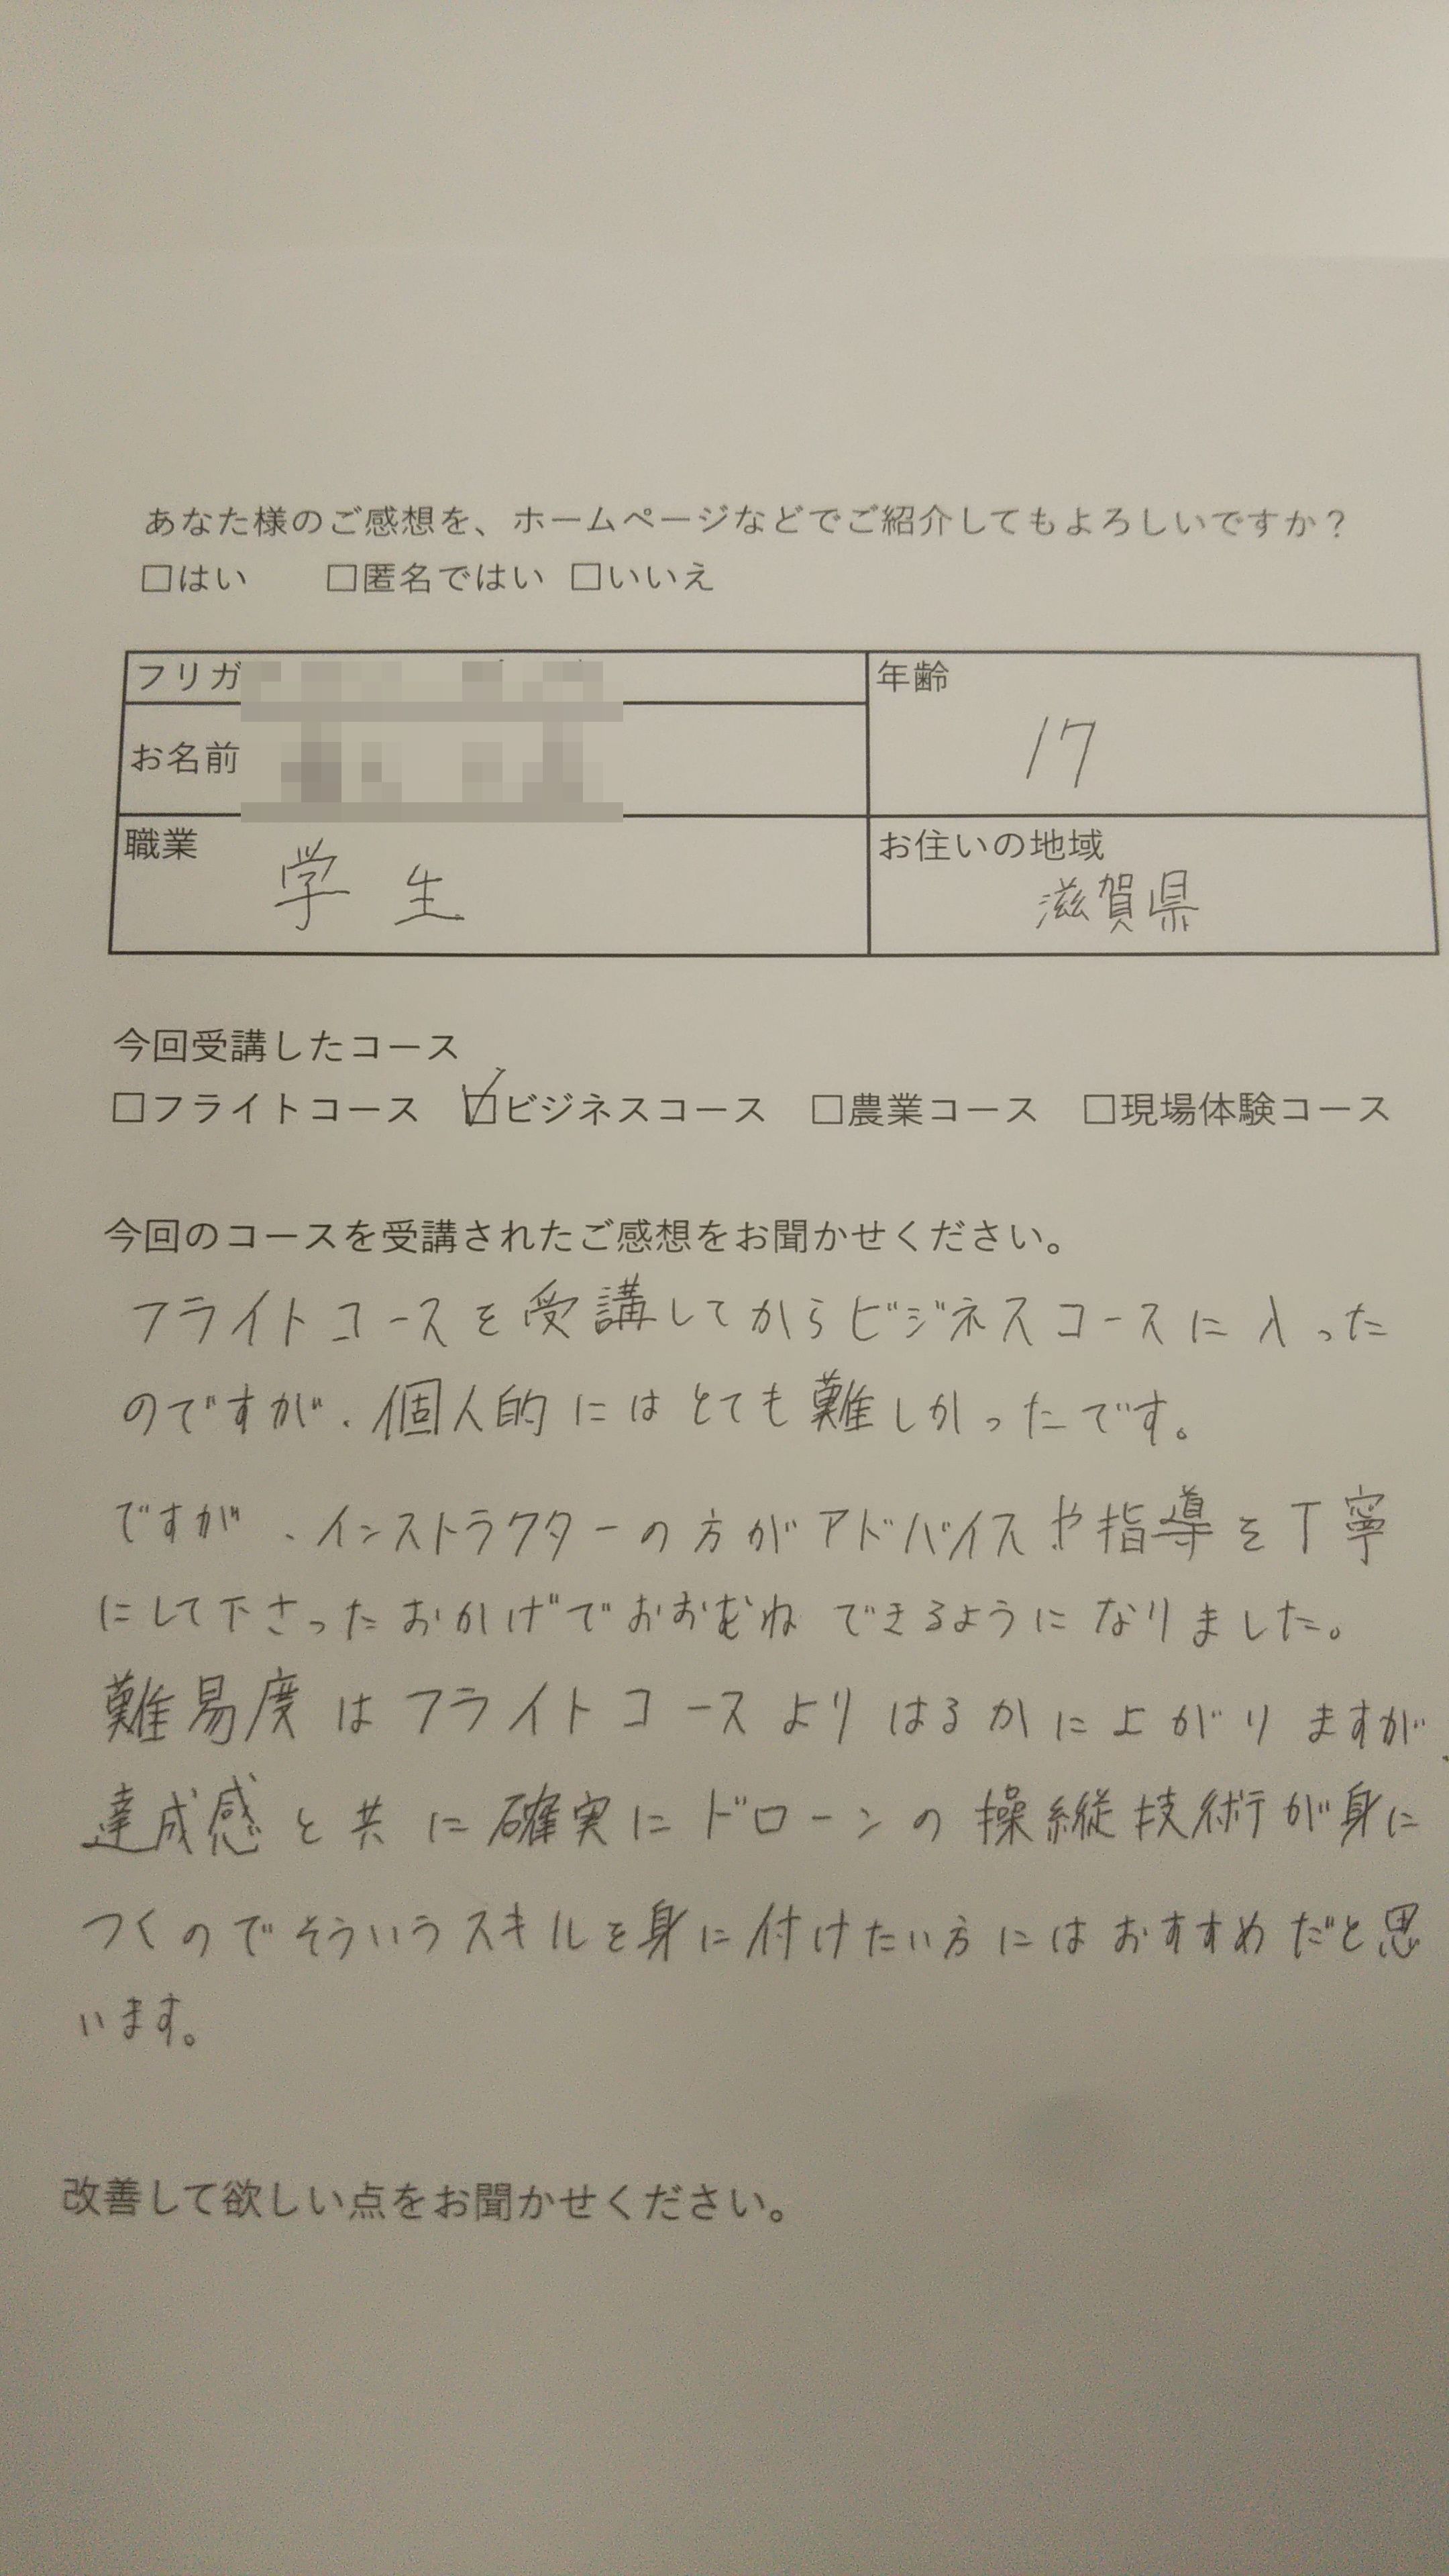 あなた様のご感想を、ホームページなどでご紹介してもよろしいですか？
□はい　□匿名ではい　□いいえ
フリガ
年齢
17
お名前
職業
学生
お住いの地域
滋賀県
今回受講したコース
□フライトコース　☑ビジネスコース　□農業コース　□現場体験コース
今回のコースを受講されたご感想をお聞かせください。
フライトコースを受講してからビジネスコースに入った
のですが、個人的にはとても難しかったです。
ですが、インストラクターの方がアドバイスや指導を丁寧
にして下さったおかげでおおむねできるようになりました。
難易度はフライトコースよりはるかに上がりますが、
達成感と共に確実にドローンの操縦技術が身に
つくのでそういうスキルを身に付けたい方にはおすすめだと思
います。
改善して欲しい点をお聞かせください。